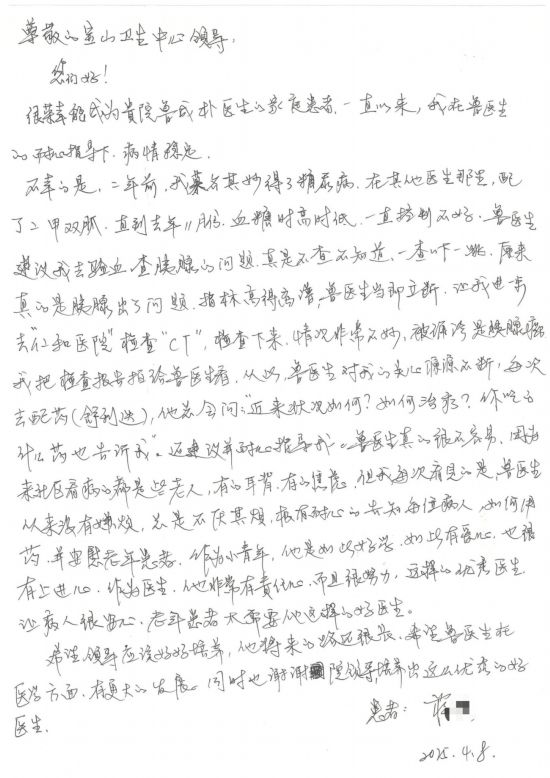 尊敬的宝山卫生中心领导，
您们好！
很荣幸能成为贵院兽成朴医生的家庭患者，一直以来，我在兽医生
的耐心指导下，病情稳定。
不幸的是，二年前，我莫名其妙得了糖尿病，在其他医生那里，配
了二甲双胍，直到去年11月份，血糖时高时低，一直控制不好，兽医生
建议我去验血，查胰腺的问题，真是不查不知道，一查吓一跳，原来
真的是胰腺出了问题，指标高得离谱，兽医生当即立断，让我进一步
去“仁和医院”检查“CT”，检查下来，情况非常不妙，被确诊是胰腺癌，
我把检查报告拍给兽医生看，从此，兽医生对我的关心源源不断，每次
去配药（舒利迭），他总会问：“近来状况如何？如何治疗？你吃了
什么药也告诉我”。还建议并耐心指导我。兽医生真的很不容易，因为
来社区看病的都是些老人，有的耳背，有的焦虑，但我每次看见的是，兽医生
从来没有嫌烦，总是不厌其烦，极有耐心的告知每位病人，如何用
药，并安慰老年患者，作为小青年，他是如此好学，如此有爱心，也很
有上进心，作为医生，他非常有责任心，而且很努力，这样的优秀医生
让病人很安心，老年患者太需要他这样的好医生。
希望领导应该好好培养，他将来的路还很长，希望兽医生在
医学方面，有更大的发展。同时也谢谢院领导培养出这么优秀的好
医生。
患者：蒋
2025.4.8.